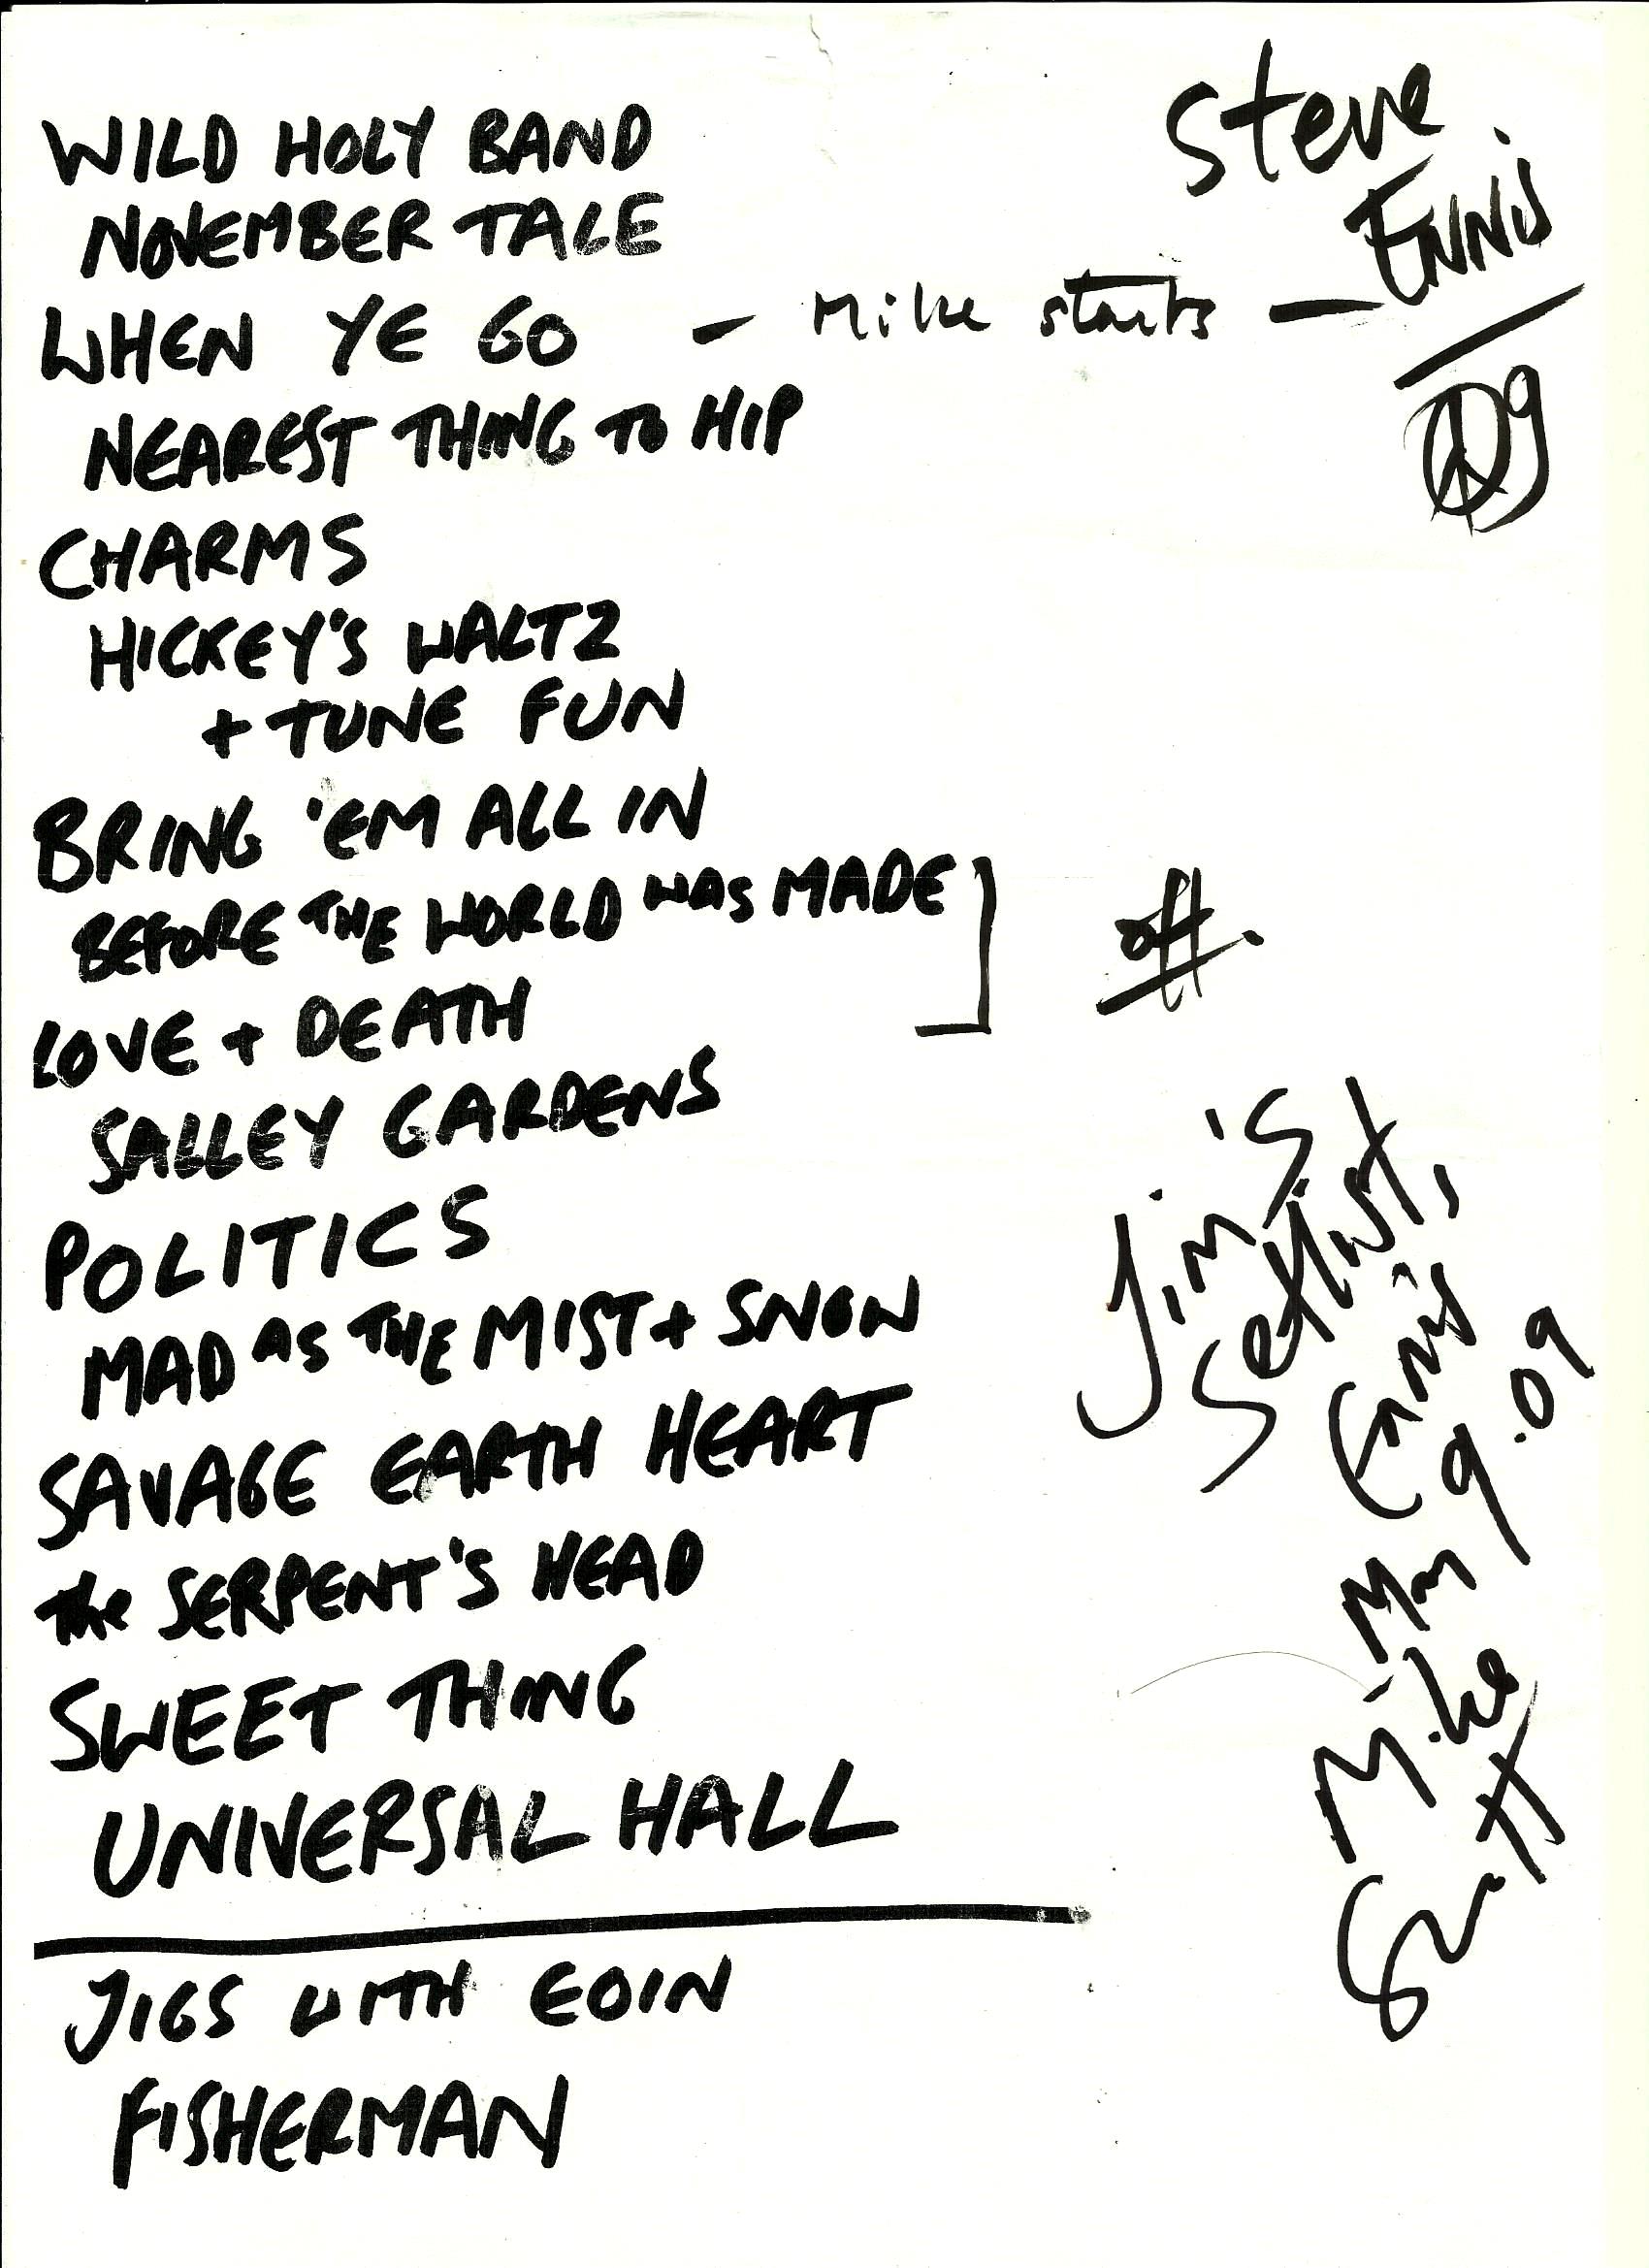 WILD HOLY BAND
NOVEMBER TALE
WHEN YE GO – Mike starts –
NEAREST THING TO HIP
CHARMS
HICKEY'S WALTZ
+ TUNE FUN
BRING 'EM ALL IN
BEFORE THE WORLD WAS MADE
LOVE + DEATH
SALLEY GARDENS
POLITICS
MAD AS THE MIST + SNOW
SAVAGE EARTH HEART
the SERPENT'S HEAD
SWEET THING
UNIVERSAL HALL
JIGS WITH EOIN
FISHERMAN
Steve
ENNIS
09
off.
Jim's
Setlist,
Ennis
May 9.09
Mike
Scott